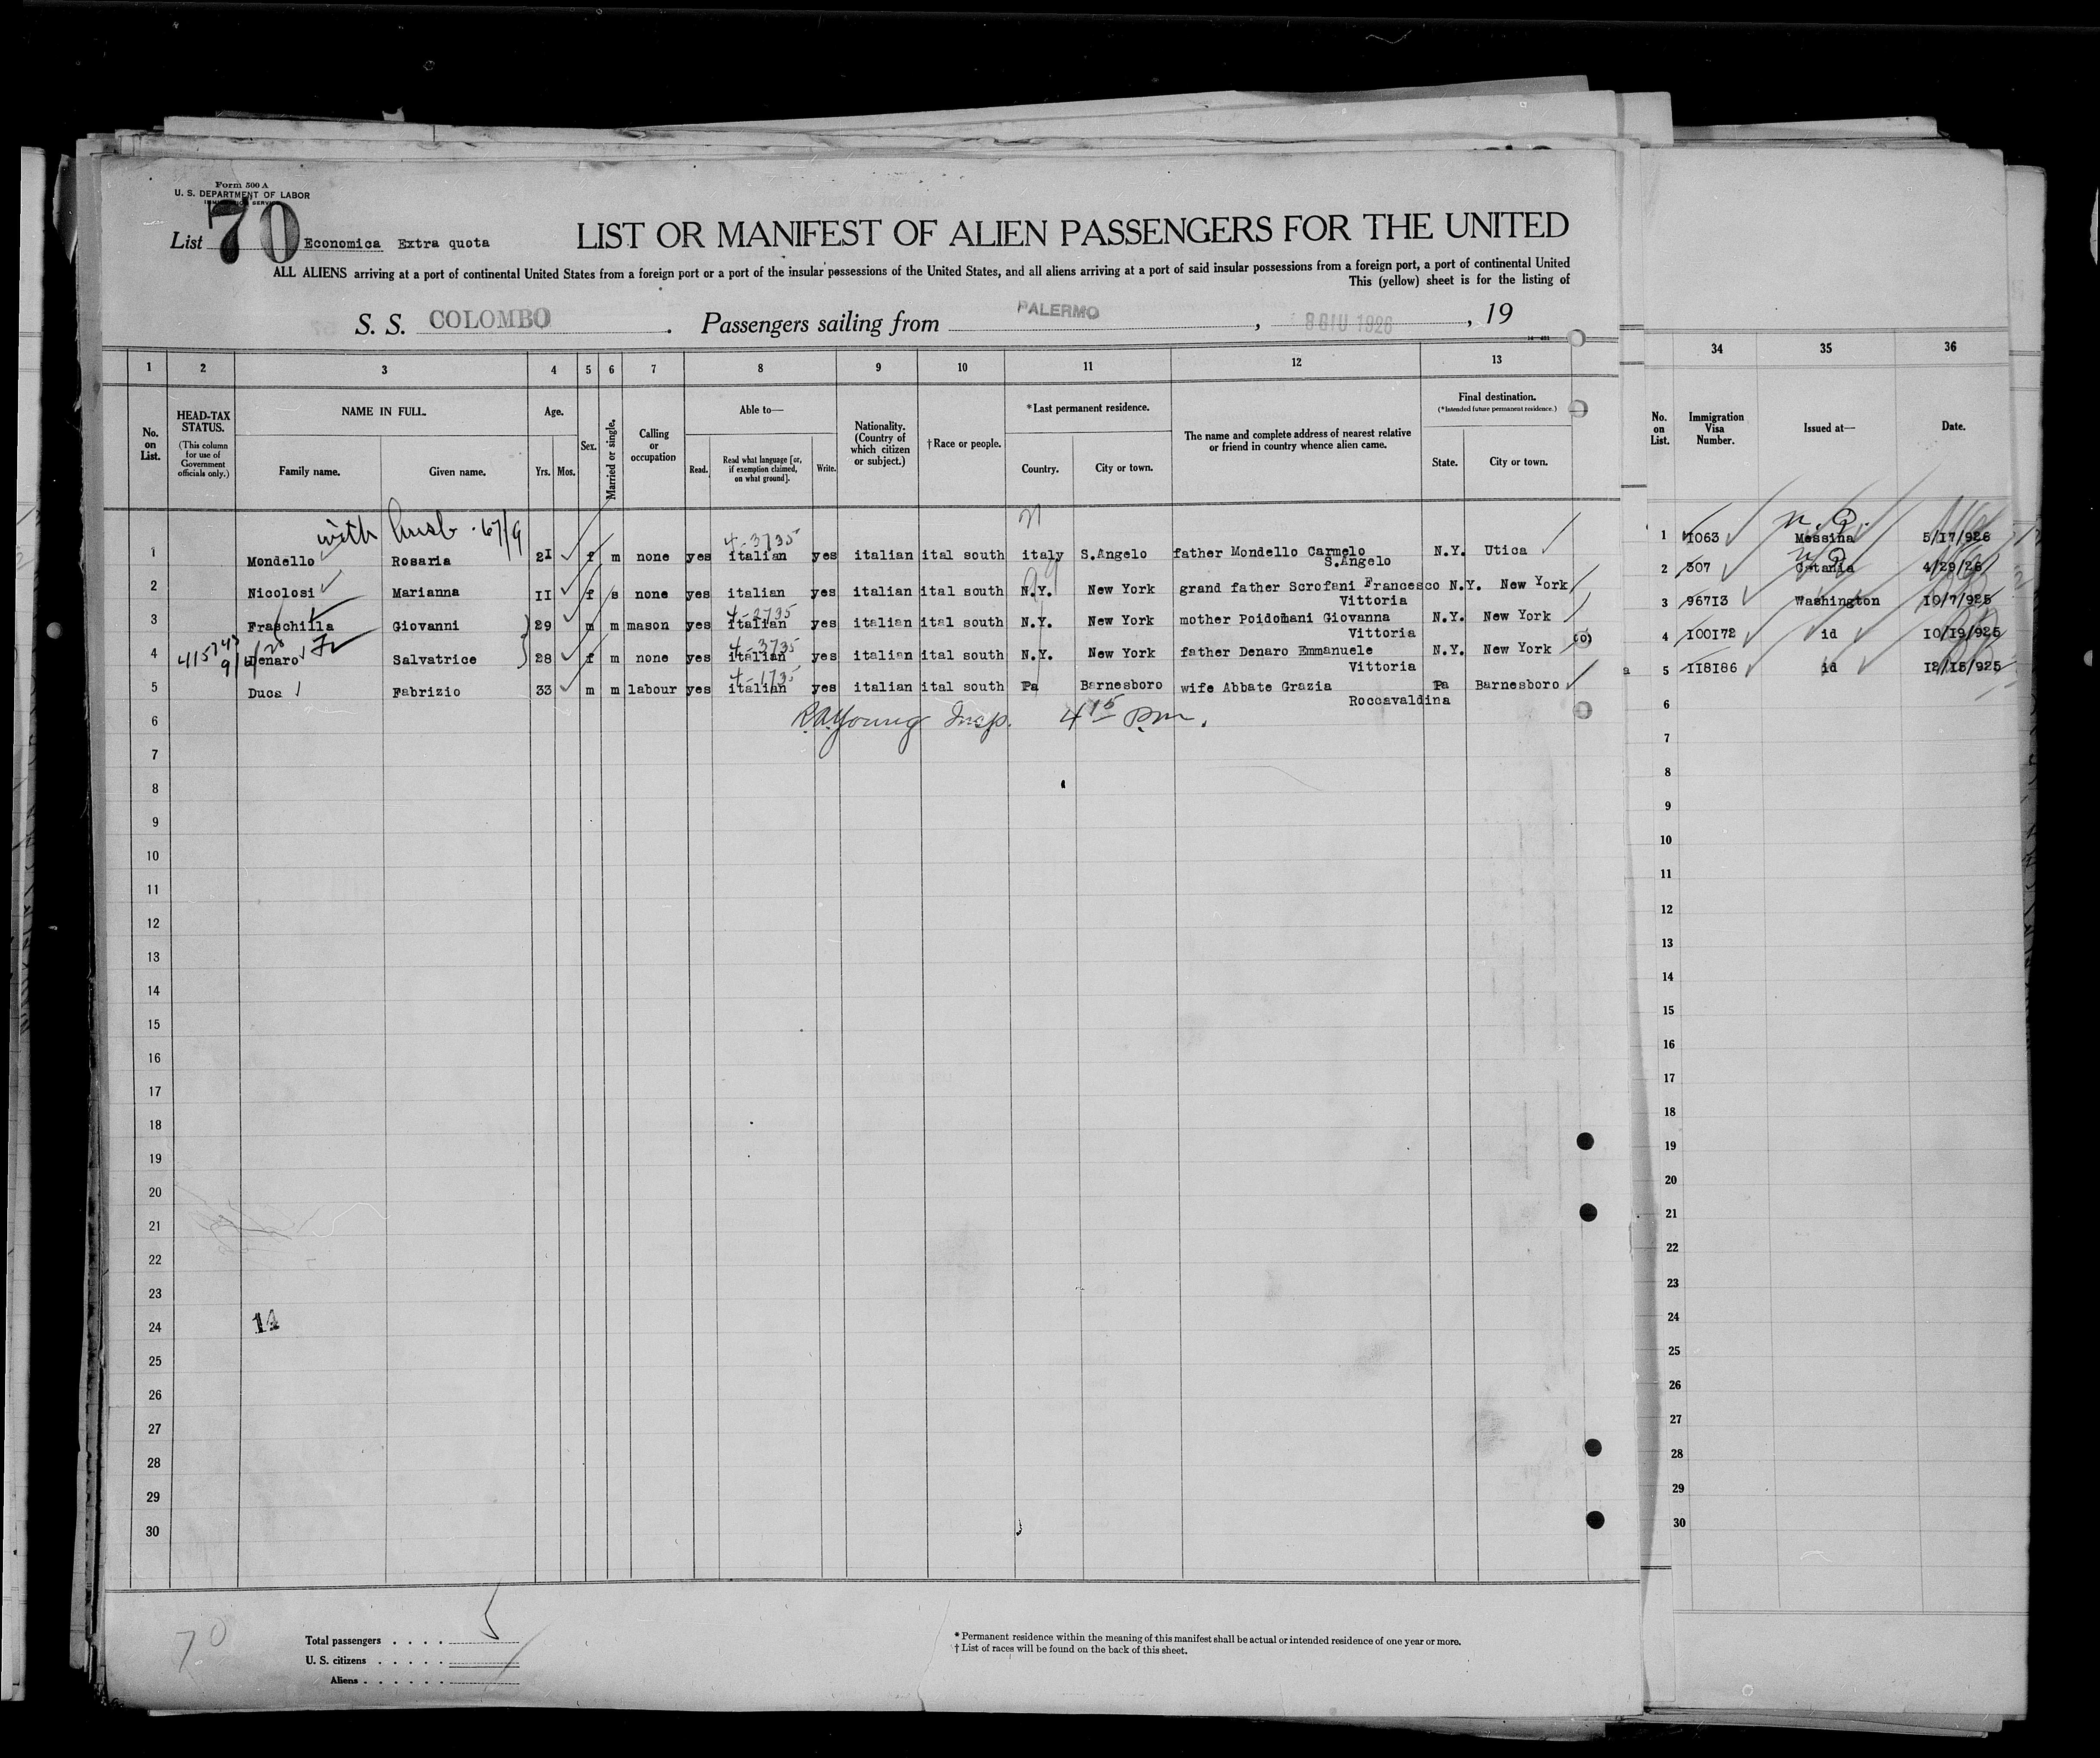 Form 500 A
U. S. DEPARTMENT OF LABOR
IMMIGRATION SERVICE
List 70 Economica Extra quota
LIST OR MANIFEST OF ALIEN PASSENGERS FOR THE UNITED
ALL ALIENS arriving at a port of continental United States from a foreign port or a port of the insular possessions of the United States, and all aliens arriving at a port of said insular possessions from a foreign port, a port of continental United
This (yellow) sheet is for the listing of
S. S. COLOMBO . Passengers sailing from PALERMO , 8 GIU 1926 , 19
1 2 3 4 5 6 7 8 9 10 11 12 13
No. on List.
HEAD-TAX STATUS.
(This column for use of Government officials only.)
NAME IN FULL.
Family name. Given name.
Age.
Yrs. Mos.
Sex.
Married or single.
Calling or occupation
Able to—
Read. Read what language [or, if exemption claimed, on what ground]. Write.
Nationality. (Country of which citizen or subject.)
†Race or people.
*Last permanent residence.
Country. City or town.
The name and complete address of nearest relative or friend in country whence alien came.
Final destination.
(*Intended future permanent residence.)
State. City or town.
34 35 36
No. on List.
Immigration Visa Number.
Issued at—
Date.
with husb - 67/9
4-3735
1 Mondello Rosaria 21 f m none yes italian yes italian ital south italy S.Angelo father Mondello Carmelo N.Y. Utica
S.Angelo
2 Nicolosi Marianna II f s none yes italian yes italian ital south N.Y. New York grand father Scrofani Francesco N.Y. New York
Vittoria
4-3735
3 Fraschilla Giovanni 29 m m mason yes italian yes italian ital south N.Y. New York mother Poidomani Giovanna N.Y. New York
Vittoria
4-3735
4 Denaro Salvatrice 28 f m none yes italian yes italian ital south N.Y. New York father Denaro Emmanuele N.Y. New York
Vittoria
4-1735
5 Duca Fabrizio 33 m m labour yes italian yes italian ital south Pa Barnesboro wife Abbate Grazia Pa Barnesboro
Roccavaldina
6 R.A.Young Insp. 4 15 pm.
7
8
9
10
11
12
13
14
15
16
17
18
19
20
21
22
23
24
14
25
26
27
28
29
30
n. Q.
1 1063 Messina 5/17/926
n Q
2 307 Catania 4/29/26
3 96713 Washington 10/7/925
4 100172 id 10/19/925
5 118186 id 12/15/925
6
7
8
9
10
11
12
13
14
15
16
17
18
19
20
21
22
23
24
25
26
27
28
29
30
70
Total passengers . . . . 5
U. S. citizens . . . . .
Aliens . . . . . .
* Permanent residence within the meaning of this manifest shall be actual or intended residence of one year or more.
† List of races will be found on the back of this sheet.